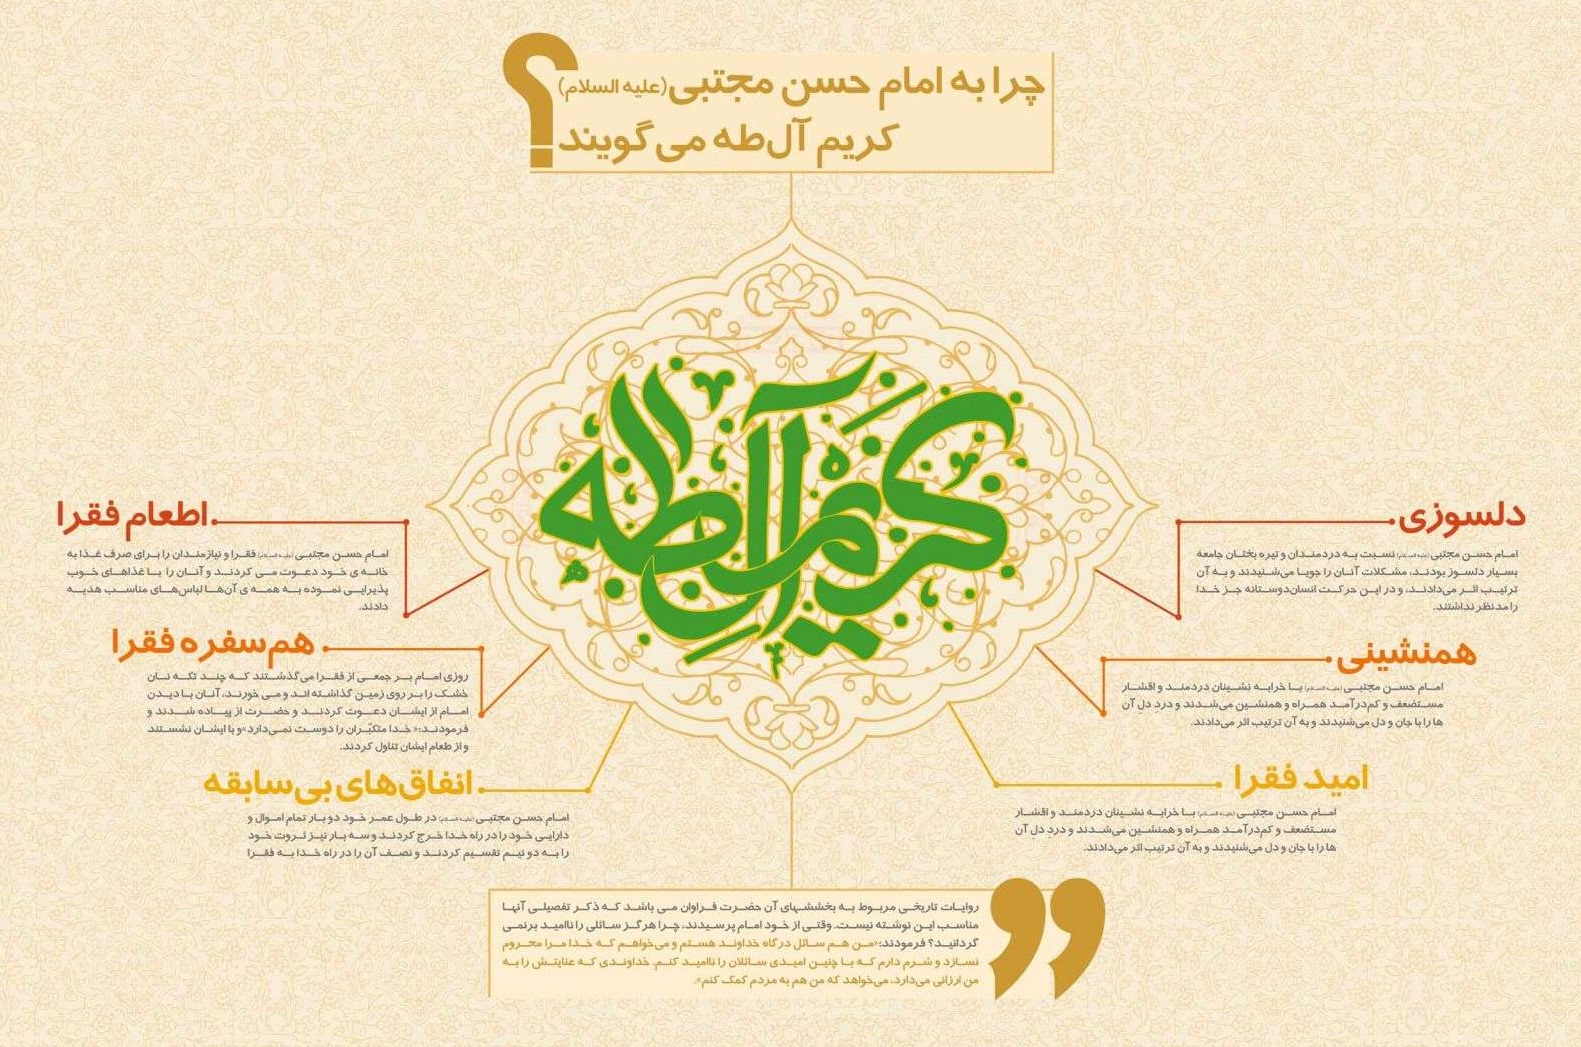 چرا به امام حسن مجتبی(علیه السلام)
کریم آل‌طه می‌گویند؟
کریم آل طه
دلسوزی
امام حسن مجتبی(علیه السلام) نسبت به دردمندان و تیره بختان جامعه
بسیار دلسوز بودند، مشکلات آنان را جویا می‌شنیدند و به آن
ترتیب اثر می‌دادند، و در این حرکت انسان‌دوستانه جز خدا
را مد نظر نداشتند.
همنشینی
امام حسن مجتبی(علیه السلام) با خرابه نشینان دردمند و اقشار
مستضعف و کم‌درآمد همراه و همنشین می‌شدند و درد دل آن
ها را با جان و دل می‌شنیدند و به آن ترتیب اثر می‌دادند.
امید فقرا
امام حسن مجتبی(علیه السلام) با خرابه نشینان دردمند و اقشار
مستضعف و کم‌درآمد همراه و همنشین می‌شدند و درد دل آن
ها را با جان و دل می‌شنیدند و به آن ترتیب اثر می‌دادند.
اطعام فقرا
امام حسن مجتبی(علیه السلام) فقرا و نیازمندان را برای صرف غذا به
خانه ی خود دعوت می کردند و آنان را با غذاهای خوب
پذیرایی نموده به همه ی آن‌ها لباس‌های مناسب هدیه
دادند.
هم‌سفره فقرا
روزی امام بر جمعی از فقرا می‌گذشتند که چند تکه نان
خشک را بر روی زمین گذاشته اند و می خورند، آنان با دیدن
امام از ایشان دعوت کردند و حضرت از پیاده شدند و
فرمودند:« خدا متکبّران را دوست نمی‌دارد»و با ایشان نشستند
و از طعام ایشان تناول کردند.
انفاق‌های بی‌سابقه
امام حسن مجتبی(علیه السلام) در طول عمر خود دو بار تمام اموال و
دارایی خود را در راه خدا خرج کردند و سه بار نیز ثروت خود
را به دو نیم تقسیم کردند و نصف آن را در راه خدا به فقرا
روایات تاریخی مربوط به بخششهای آن حضرت فراوان می باشد که ذکر تفصیلی آنها
مناسب این نوشته نیست. وقتی از خود امام پرسیدند، چرا هرگز سائلی را ناامید برنمی
گردانید؟ فرمودند:«من هم سائل درگاه خداوند هستم و می‌خواهم که خدا مرا محروم
نسازد و شرم دارم که با چنین امیدی سائلان را ناامید کنم. خداوندی که عنایتش را به
من ارزانی می‌دارد، می‌خواهد که من هم به مردم کمک کنم».